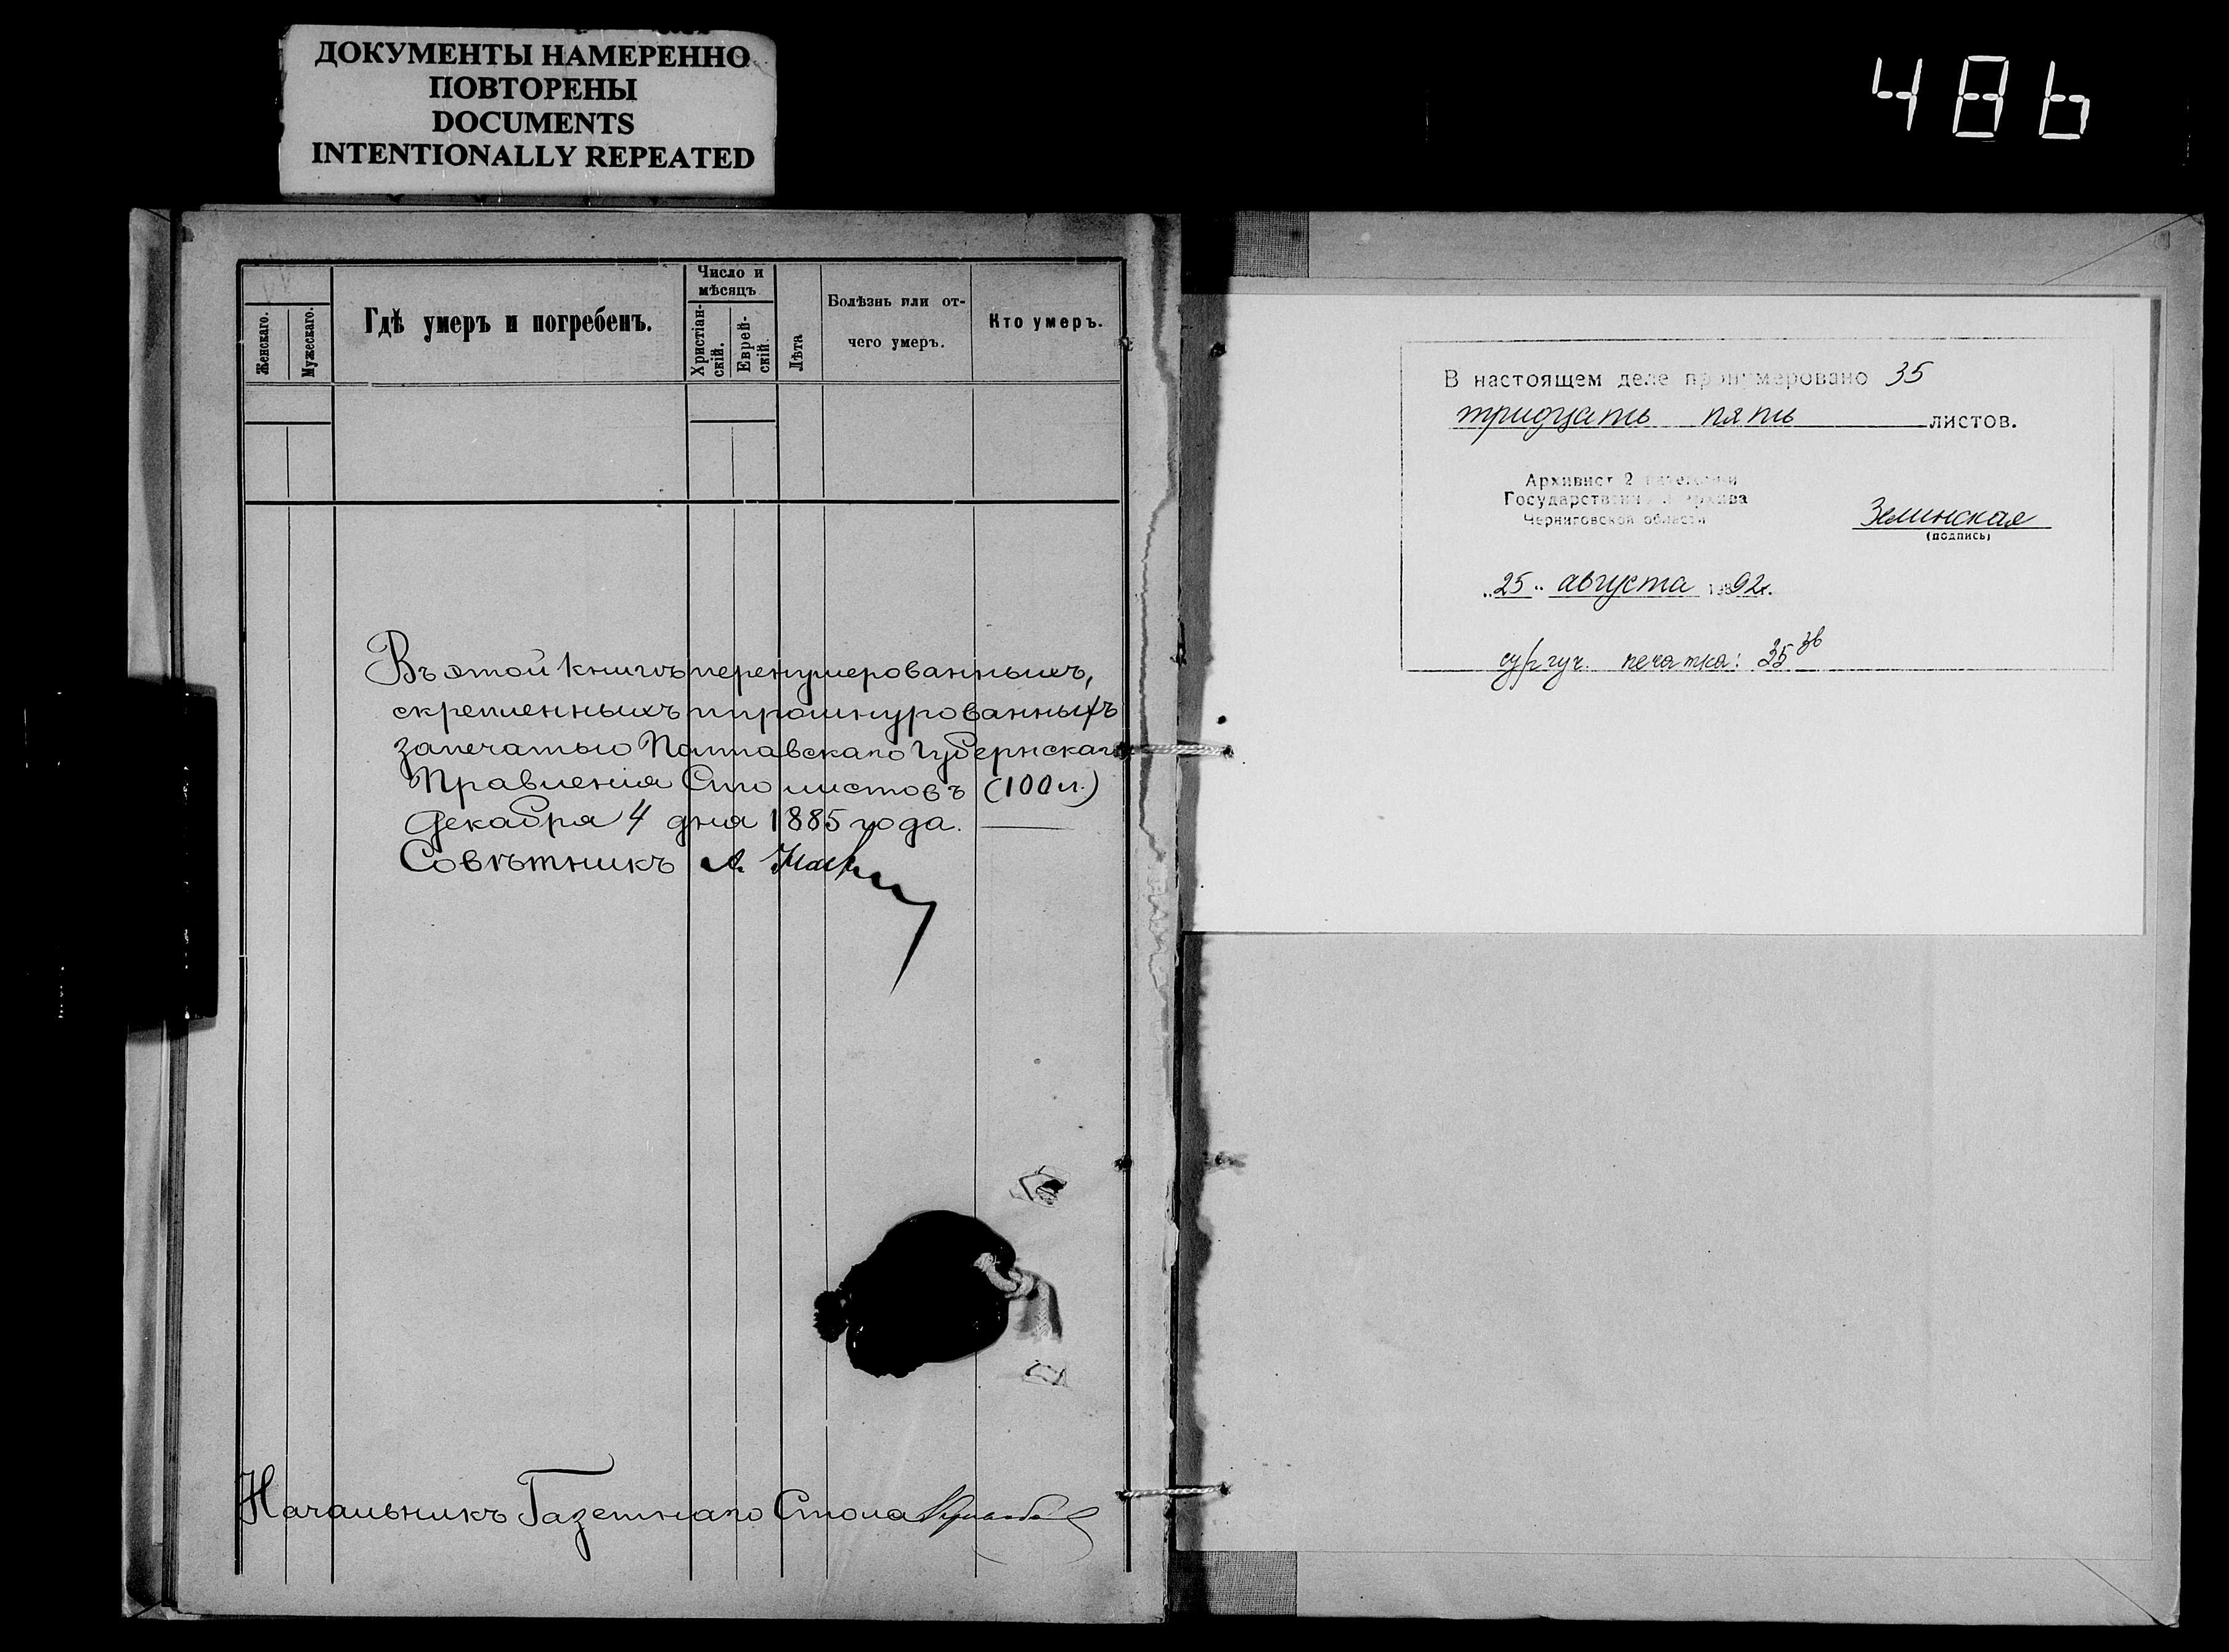 ДОКУМЕНТЫ НАМЕРЕННО
ПОВТОРЕНЫ
DOCUMENTS
INTENTIONALLY REPEATED
486
Женскаго.
Мужескаго.
Гдѣ умеръ и погребенъ.
Число и
мѣсяцъ
Христіан-
скій.
Еврей-
скій.
Лѣта
Болѣзнь или от-
чего умеръ.
Кто умеръ.
Въ этой книгѣ перенумерованныхъ,
скрепленныхъ и прошнурованныхъ
за печатью Полтавскаго Губернскаго
Правленія Сто листовъ (100 л.)
Декабря 4 дня 1885 года.
Совѣтникъ А.
Начальникъ Газетнаго Стола
В настоящем деле пронумеровано 35
тридцать пять листов.
Архивист 2 категории
Государственного архива
Черниговской области
Зелинская
(подпись)
"25" августа 1992г.
сургуч. печатка: 35 зв